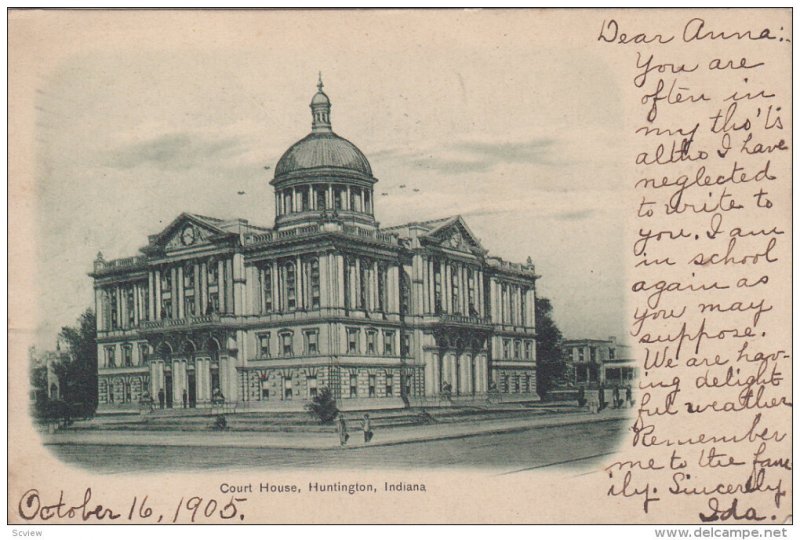 Dear Anna:.
You are
often in
my tho'ts
altho I have
neglected
to write to
you. I am
in school
again as
you may
suppose.
We are hav-
ing delight
ful weather
Remember
me to the fam
ily. Sincerely
Ida.
Court House, Huntington, Indiana
October 16, 1905.
Scview
www.alamy.com